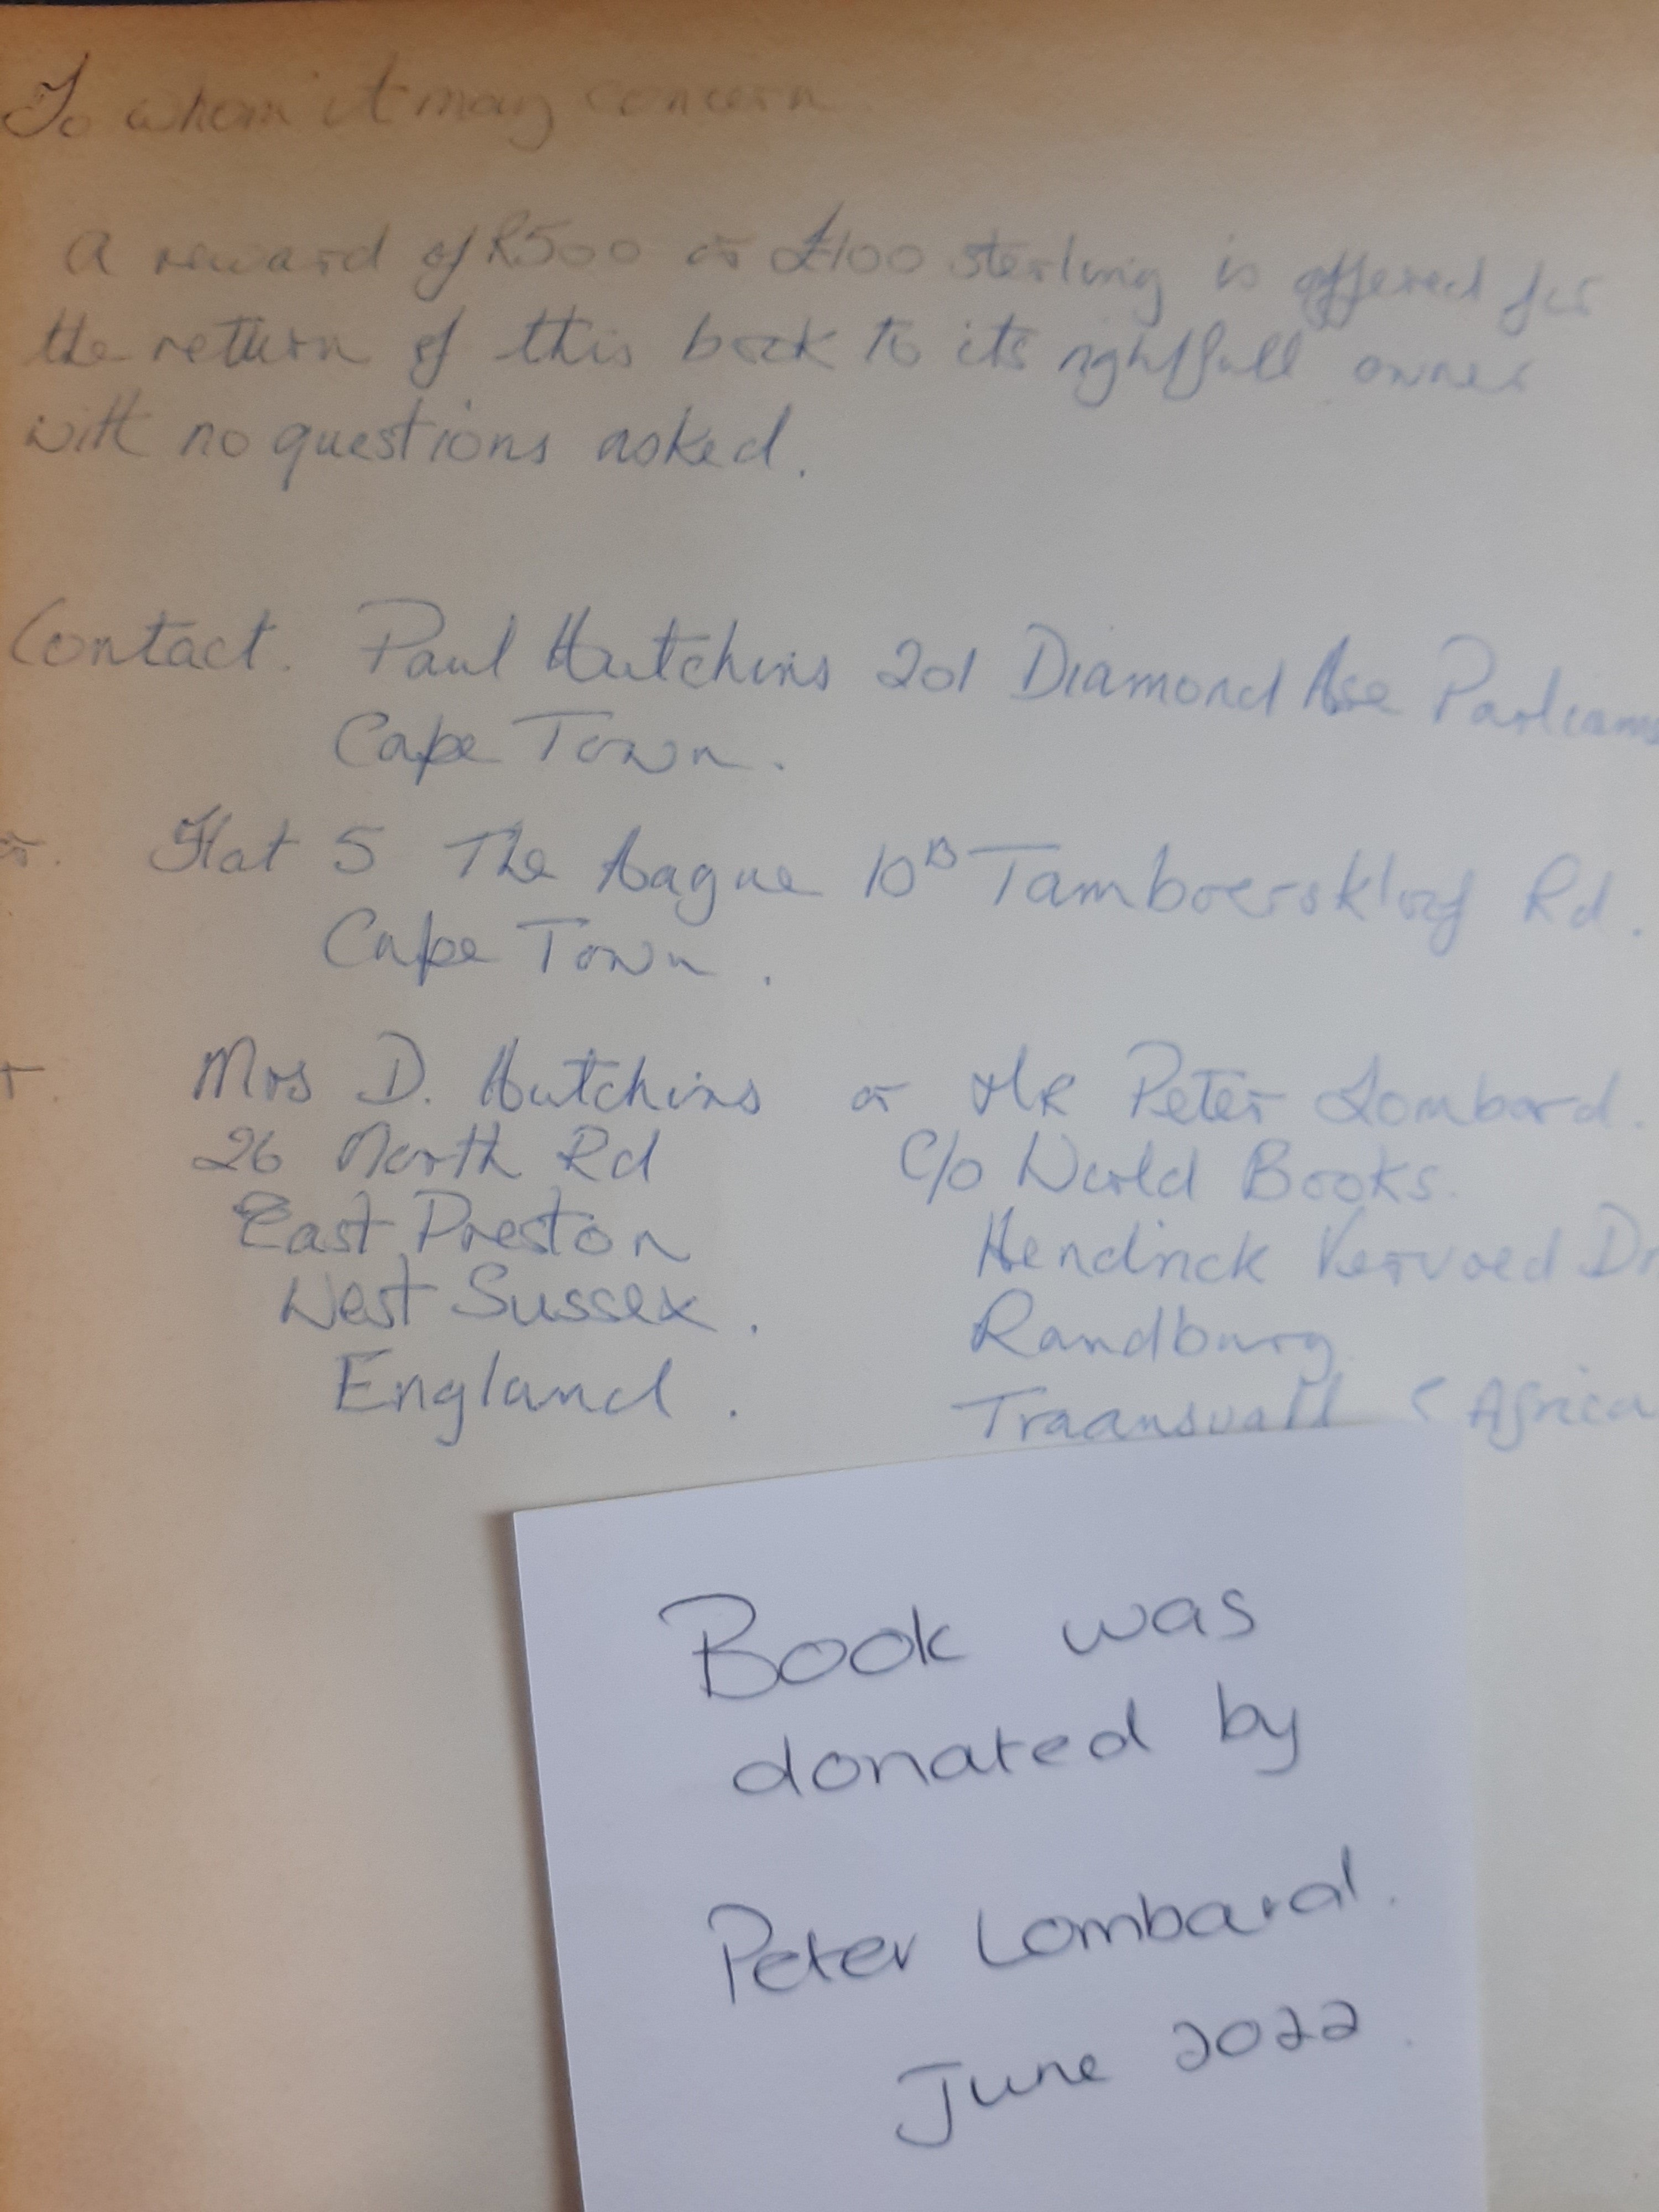 To whom it may concern
A reward of R500 or £100 sterling is offered for
the return of this book to its rightfull owner
with no questions asked.
Contact. Paul Hutchins 201 Diamond Hse
Cape Town.
or. Flat 5 The Hague 10B Tamboerskloof Rd.
Cape Town.
Mrs D. Hutchins or MR Peter Lombard.
26 North Rd C/o World Books.
East Preston Hendrick Vervoed Dr
West Sussex. Randburg
England. Traansvall S Africa
Book was
donated by
Peter Lombard.
June 2022.